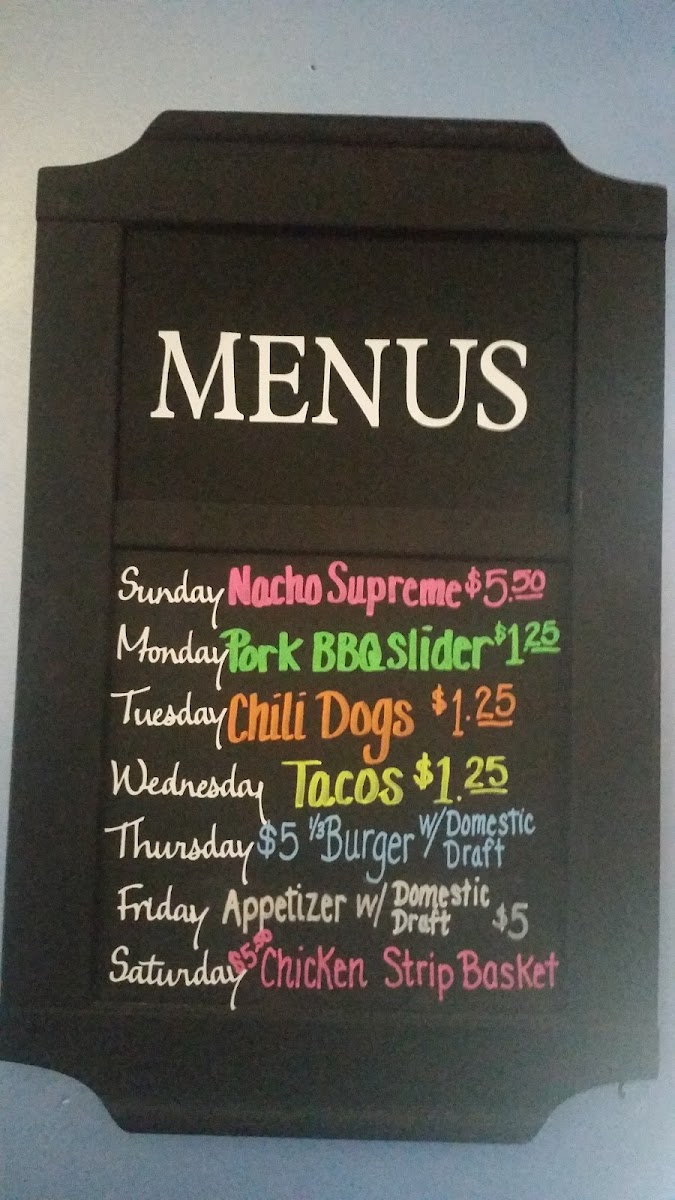 MENUS
Sunday Nacho Supreme $5.50
Monday Pork BBQ Slider $1.25
Tuesday Chili Dogs $1.25
Wednesday Tacos $1.25
Thursday $5 1/3 Burger w/ Domestic Draft
Friday Appetizer w/ Domestic Draft $5
Saturday $5.50 Chicken Strip Basket